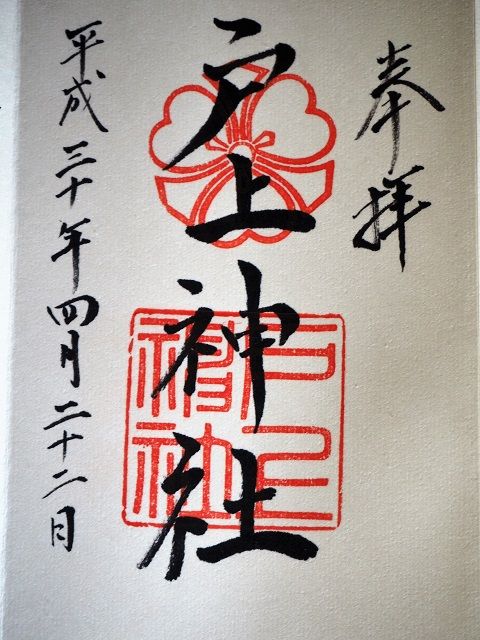 奉拝
戸上神社
戸上
神社
平成三十年四月二十二日